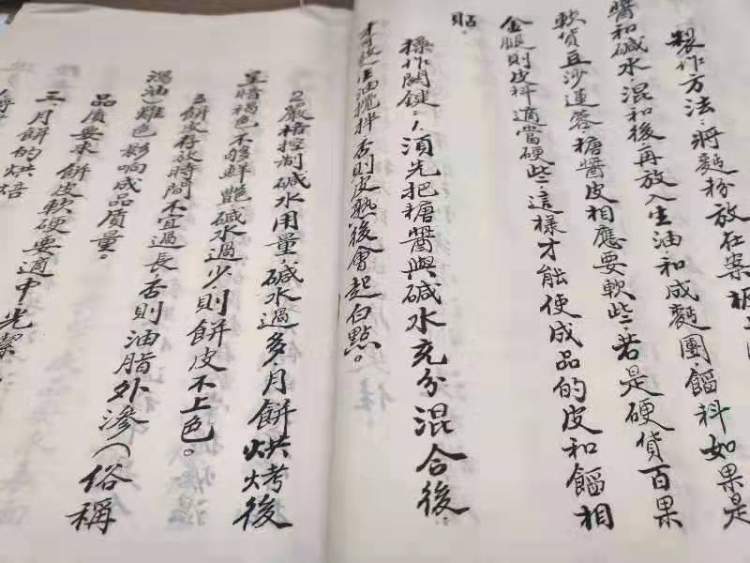 製作方法:將麵粉放在案板
醬和碱水混和後再放入生油和成麵團餡料如果是
軟貨豆沙蓮蓉:糖醬皮相應要軟些;若是硬貨百果
金腿則皮料適當硬些:這樣才能使成品的皮和餡相
貼。
操作関鍵:1.須先把糖醬與碱水充分混合後.
才可放生油攪拌否則皮熟後會起白點。
2嚴格控制碱水用量:碱水過多月餅烘烤後
呈暗褐色不够鮮艷碱水過少.則餅皮不上色。
3.餅皮存放時間不宜過長否則油脂外滲(俗稱
瀉油)難色影响成品質量。
品質要求餅皮軟硬要適中光潔
三.月餅的烘焙